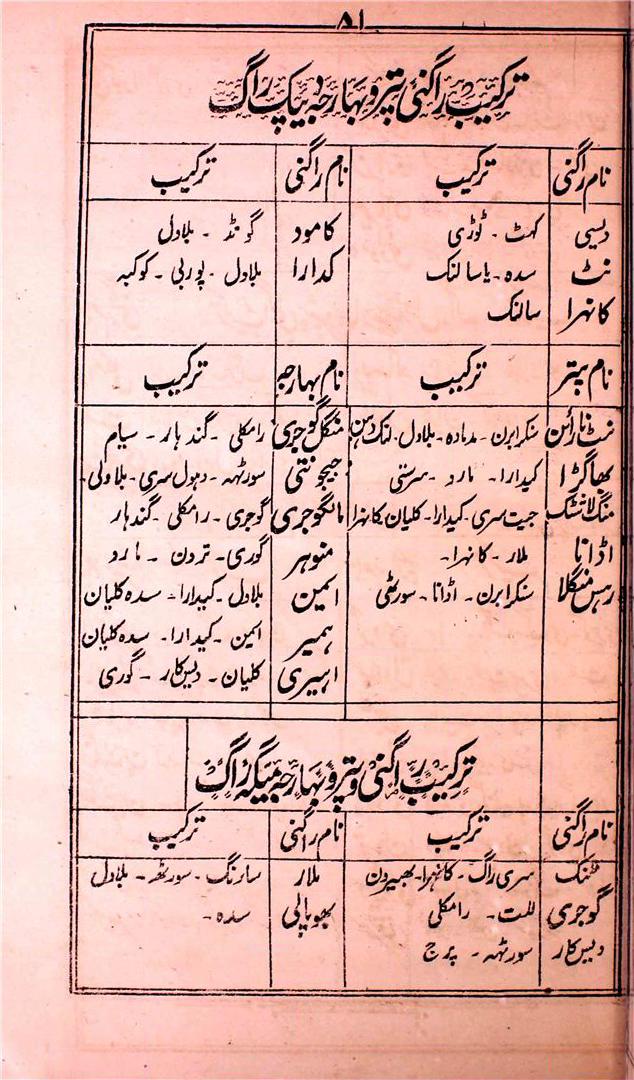 ۵۱
ترکیب راگنی پتر و بہارجہ دیپک راگ
نام راگنی ترکیب نام راگنی ترکیب
دیسی کہٹ - ٹوڑی کامود گونڈ - بلاول
نٹ سدہ - یا سالنک کدارا بلاول - پوربی - کوکبہ
کانہرا سالنک
نام پتر ترکیب نام بہارجہ ترکیب
نٹ نارائن سنکرابرن - مدہادہ - بلاول - لنک دہن منگل گوجری رامکلی - گندہار - سیام
بھاگڑا کیدارا - مارد - سرستی جیجونتی سورٹھہ - دہول سری - بلاولی -
منگ لاشٹک جیت سری - کیدارا - کلیان - کانہرا مالگوجری گوجری - رامکلی - گندہار
اڈانا ملار - کانہرا - منوہر گوری - تردن - مارد
رہس منگلا سنکرابرن - اڈانا - سورٹھی ایمن بلاول - کیدارا - سدہ کلیان
ہمیر ایمن - کیدارا - سدہ کلیان
اہیری کلیان - دیسکار - گوری
ترکیب راگنی و پتر و بہارجہ میگہ راگ
نام راگنی ترکیب نام راگنی ترکیب
ٹنک سری راگ - کانہرا - بھیردن ملار سارنگ - سورٹھہ - بلاول
گوجری للت - رامکلی بھوپالی سدہ -
دیسکار سورٹھہ - پرج